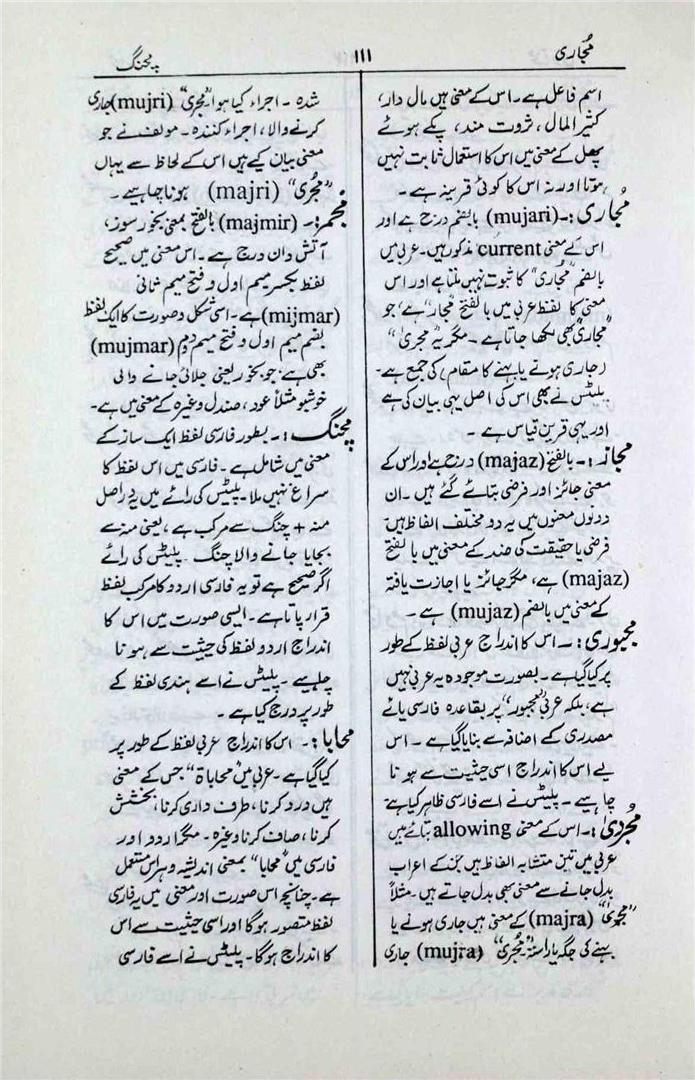 مُجاری
۱۱۱
مچنگ
اسم فاعل ہے۔ اس کے معنی ہیں مال دار،
کثیر المال، ثروت مند، پکے ہوئے
پھل کے معنی میں اس کا استعمال ثابت نہیں
ہوتا اور نہ اس کا کوئی قرینہ ہے۔
مُجاری:۔ (mujari) بالضم درج ہے اور
اس کے معنی current مذکور ہیں۔ عربی میں
بالضم "مُجاری" کا ثبوت نہیں ملتا ہے اور اس
معنی کا لفظ عربی میں بالفتح "مَجار" ہے، جو
"مجاری" بھی لکھا جاتا ہے۔ مگر یہ "مجریٰ"
(جاری ہونے یا بہنے کا مقام) کی جمع ہے۔
پلیٹس نے بھی اس کی اصل یہی بیان کی ہے
اور یہی قرین قیاس ہے۔
مجاز:۔ بالفتح (majaz) درج ہے اور اس کے
معنی جائز اور فرضی بتائے گئے ہیں۔ ان
دونوں معنوں میں یہ دو مختلف الفاظ ہیں۔
فرضی یا حقیقت کی ضد کے معنی میں بالفتح
(majaz) ہے، مگر جائز یا اجازت یافتہ
کے معنی میں بالضم (mujaz) ہے۔
مجبوری:۔ اس کا اندراج عربی لفظ کے طور
پر کیا گیا ہے۔ بصورت موجودہ یہ عربی نہیں
ہے، بلکہ عربی "مجبور" پر بقاعدہ فارسی یائے
مصدری کے اضافہ سے بنایا گیا ہے۔ اس
لیے اس کا اندراج اسی حیثیت سے ہونا
چاہیے۔ پلیٹس نے اسے فارسی ظاہر کیا ہے۔
مُجریٰ:۔ اس کے معنی allowing بتائے ہیں
عربی میں تین متشابہ الفاظ ہیں جن کے اعراب
بدل جانے سے معنی بھی بدل جاتے ہیں۔ مثلاً
"مَجریٰ" (majra) کے معنی ہیں جاری ہونے یا
بہنے کی جگہ یا راستہ۔ "مُجریٰ" (mujra) جاری
شدہ۔ اجراء کیا ہوا۔ "مجری" (mujri) جاری
کرنے والا، اجراء کنندہ۔ مولف نے جو
معنی بیان کیے ہیں اس کے لحاظ سے یہاں
"مُجری" (majri) ہونا چاہیے۔
مجمر:۔ (majmir) بالفتح بمعنی بخور سوز،
آتش دان درج ہے۔ اس معنی میں صحیح
لفظ بکسر میم اول و فتح میم ثانی
(mijmar) ہے۔ اسی شکل و صورت کا ایک لفظ
بضم میم اول و فتح میم دوم (mujmar)
بھی ہے۔ جو بخور یعنی جلائی جانے والی
خوشبو مثلاً عود، صندل وغیرہ کے معنی میں ہے۔
مچنگ:۔ بطور فارسی لفظ ایک ساز کے
معنی میں شامل ہے۔ فارسی میں اس لفظ کا
سراغ نہیں ملا۔ پلیٹس کی رائے میں یہ دراصل
منہ + چنگ سے مرکب ہے، یعنی منہ سے
بجایا جانے والا چنگ۔ پلیٹس کی رائے
اگر صحیح ہے تو یہ فارسی اردو کا مرکب لفظ
قرار پاتا ہے۔ ایسی صورت میں اس کا
اندراج اردو لفظ کی حیثیت سے ہونا
چاہیے۔ پلیٹس نے اسے ہندی لفظ کے
طور پر درج کیا ہے۔
محابا:۔ اس کا اندراج عربی لفظ کے طور پر
کیا گیا ہے۔ عربی میں "محاباة" جس کے معنی
ہیں درد کرنا، طرف داری کرنا، بخشش
کرنا، صاف کرنا وغیرہ۔ مگر اردو اور
فارسی میں "محابا" بمعنی اندیشہ و ہراس مستعمل
ہے۔ چنانچہ اس صورت اور معنی میں یہ فارسی
لفظ متصور ہوگا اور اسی حیثیت سے اس
کا اندراج ہوگا۔ پلیٹس نے اسے فارسی